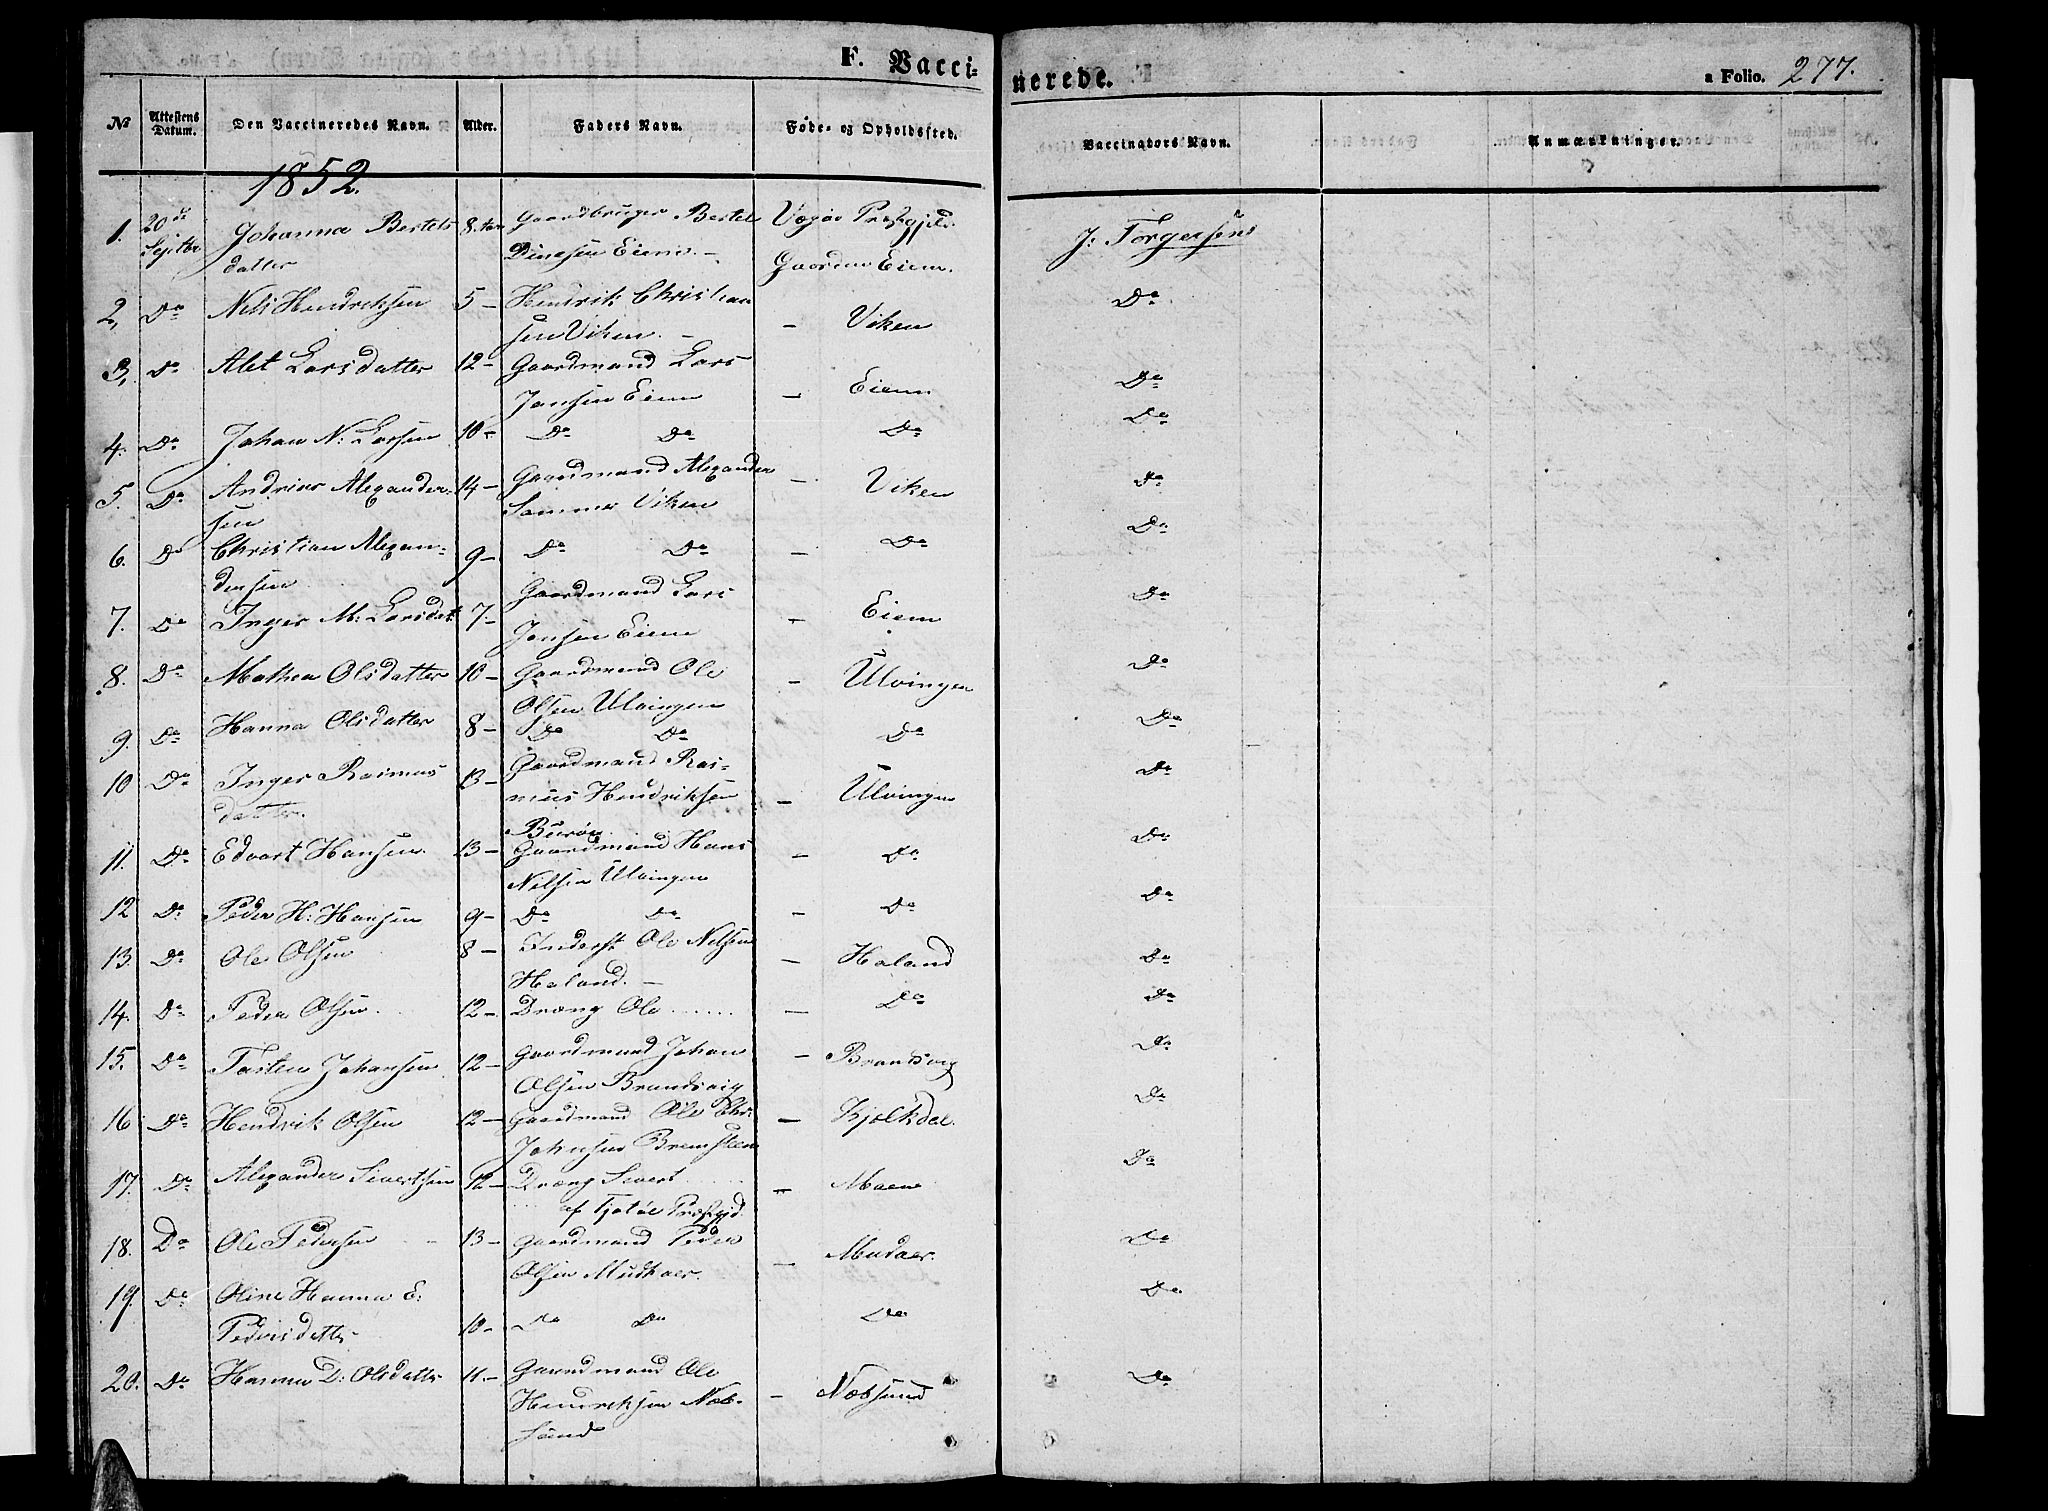 F. Vacci=
nerede.
a Folio. 277.
No
Attestens Datum.
Den Vaccineredes Navn.
Alder.
Faders Navn.
Føde- og Opholdssted.
Vaccinators Navn.
Anmærkninger.
1852.
1. 20de Septbr Johanna Bertels 8 Aar Gaardbruger Bertel Vegøe Præstgjeld.
datter Dinesen Eiem. – Gaarden Eiem.
J: Torgersens
2, Do Nils Hendriksen 5 – Hendrik Christian
sen Viken. – – Viken Do
3, Do Alet Larsdatter 12 – Gaardmand Lars
Jansen Eiem – Eiem Do
4. Do Johan N: Larsen 10 – Do Do Do Do
5. Do Andreas Alexander- 14 – Gaardmand Alexander – Viken Do
sen Sommer Viken
6. Do Christian Alexan- 9 – Do Do – Do Do
dersen
7. Do Inger M: Larsdat 7 – Gaardmand Lars
Jansen Eiem – Eiem Do
8. Do Mathea Olsdatter 10 – Gaardmand Ole
Olsen Ulvingen – Ulvingen Do
9. Do Hanna Olsdatter 8 – Do Do Do Do
10 Do Inger Rasmus 13 – Gaardmand Ras-
datter. mus Hendriksen – Ulvingen Do
Burøe
11. Do Edvart Hansen 13 – Gaardmand Hans – Do Do
Nilsen Ulvingen
12 Do Peder H: Hansen 9 – Do Do – Do Do
13. Do Ole Olsen 8 – Inderst Ole Nilsen
Haland. – – Haland Do
14. Do Peder Olsen 12 – Dræng Ole ....... – Do Do
15. Do Tosten Johansen 12 – Gaardmand Johan – Brandsvig Do
Olsen Brandsvig
16 Do Hendrik Olsen 12 – Gaardmand Ole Chr: – Kjælkdal. Do
Johnsen Bremsteen
17. Do Alexander Sivertsen 12 – Dræng Sivert ..... – Moen Do
.... af Tjøtøe Præstgjd
18. Do Ole Pedersen 13 – Gaardmand Peder
Olsen Mudvaer. – Mudvaer. Do
19. Do Oline Hanna E:
Pedersdatter 10 – Do Do Do Do
20. Do Hanna D: Olsdatter 11. – Gaardmand Ole
Hendriksen Næb- – Næbsund Do
sund